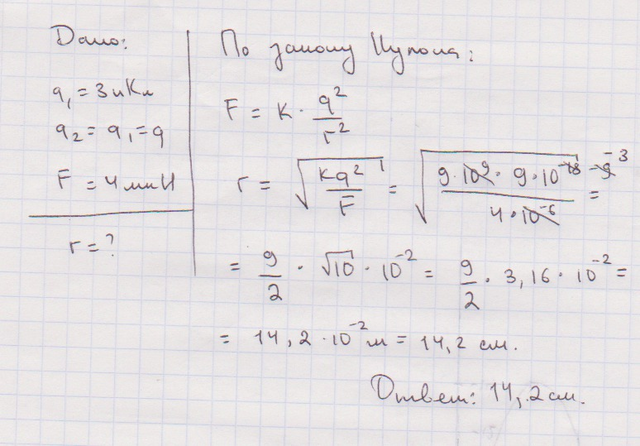 Дано:
q₁ = 3 нКл
q₂ = q₁ = q
F = 4 мкН
r = ?
По закону Кулона:
F = K · q²/r²
r = √(Kq²/F) = √(9·10⁹ · 9·10⁻¹⁸/4·10⁻⁶) =
= 9/2 · √10 · 10⁻² = 9/2 · 3,16 · 10⁻² =
= 14,2 · 10⁻² м = 14,2 см.
Ответ: 14,2 см.